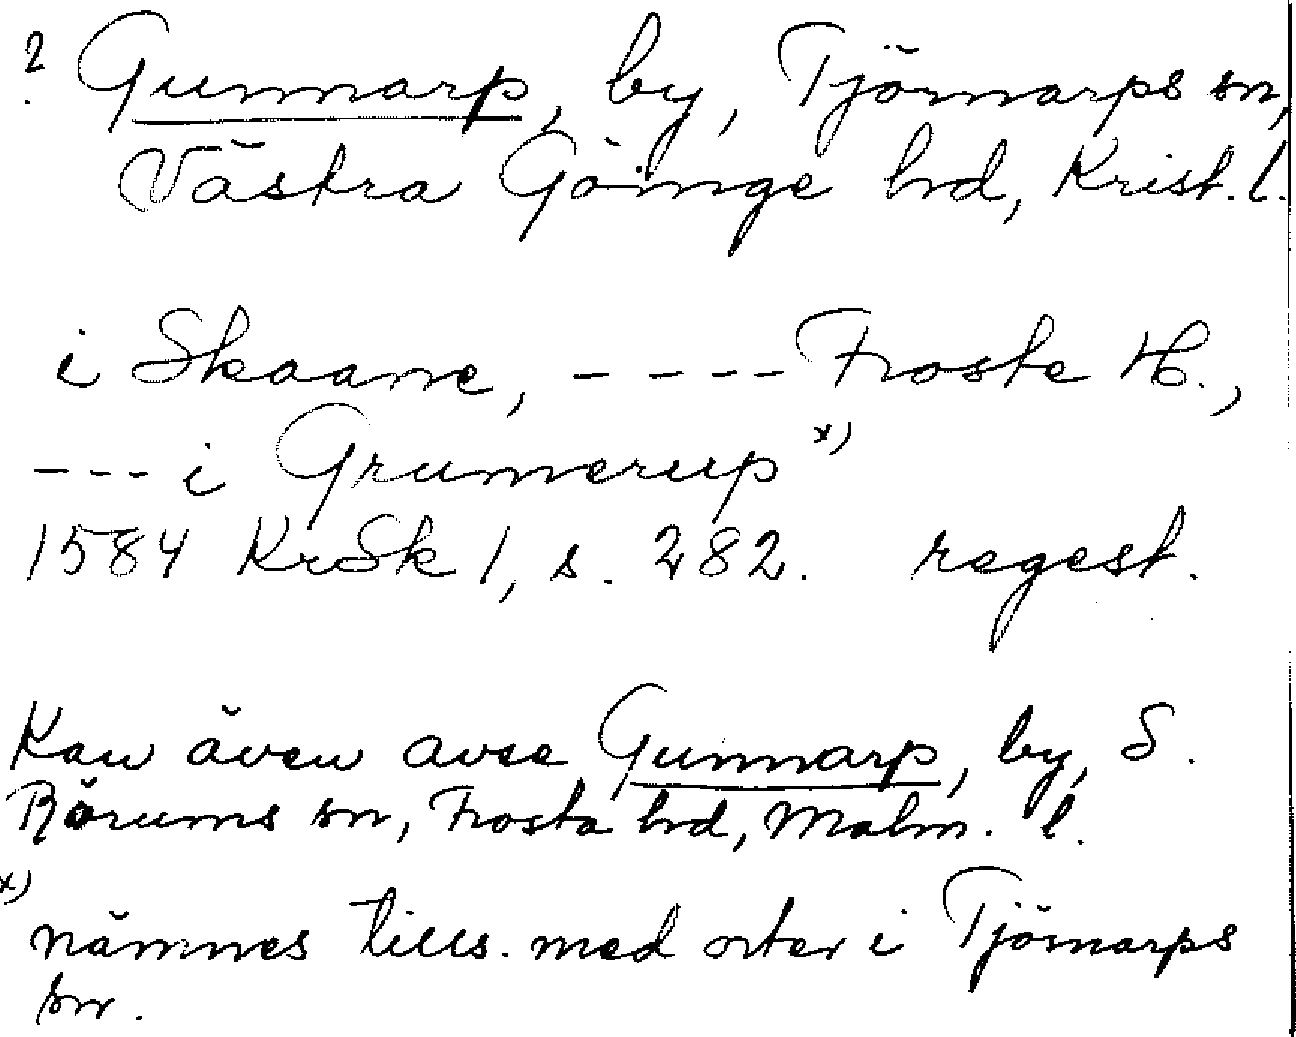 ? Gunnarp, by, Tjörnarps sn,
Västra Göinge hd, Krist. l.
i Skaane, ---- Froste H.,
--- i Grumerup x)
1584 KrSk 1, s. 282. regest.
Kan även avse Gunnarp, by, S.
Rörums sn, Frosta hd, Malm. l.
x)
nämnes tills. med orter i Tjörnarps
sn.